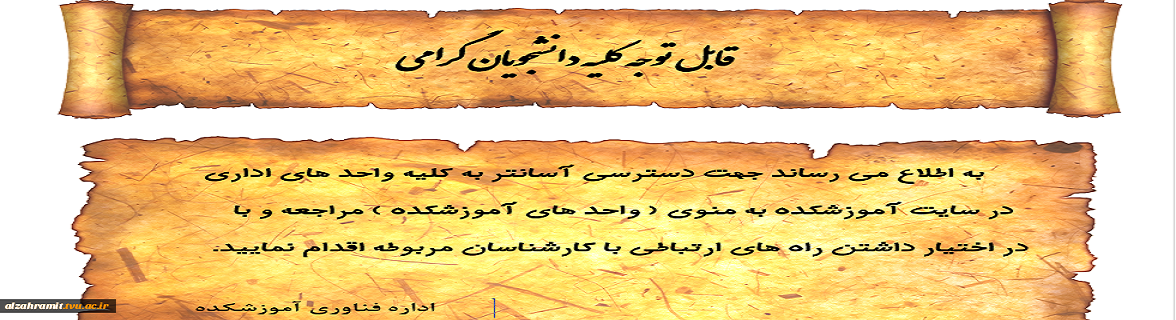 قابل توجه کلیه دانشجویان گرامی
به اطلاع می رساند جهت دسترسی آسانتر به کلیه واحد های اداری
در سایت آموزشکده به منوی ( واحد های آموزشکده ) مراجعه و با
در اختیار داشتن راه های ارتباطی با کارشناسان مربوطه اقدام نمایید.
اداره فناوری آموزشکده
alzahramit.tvu.ac.ir